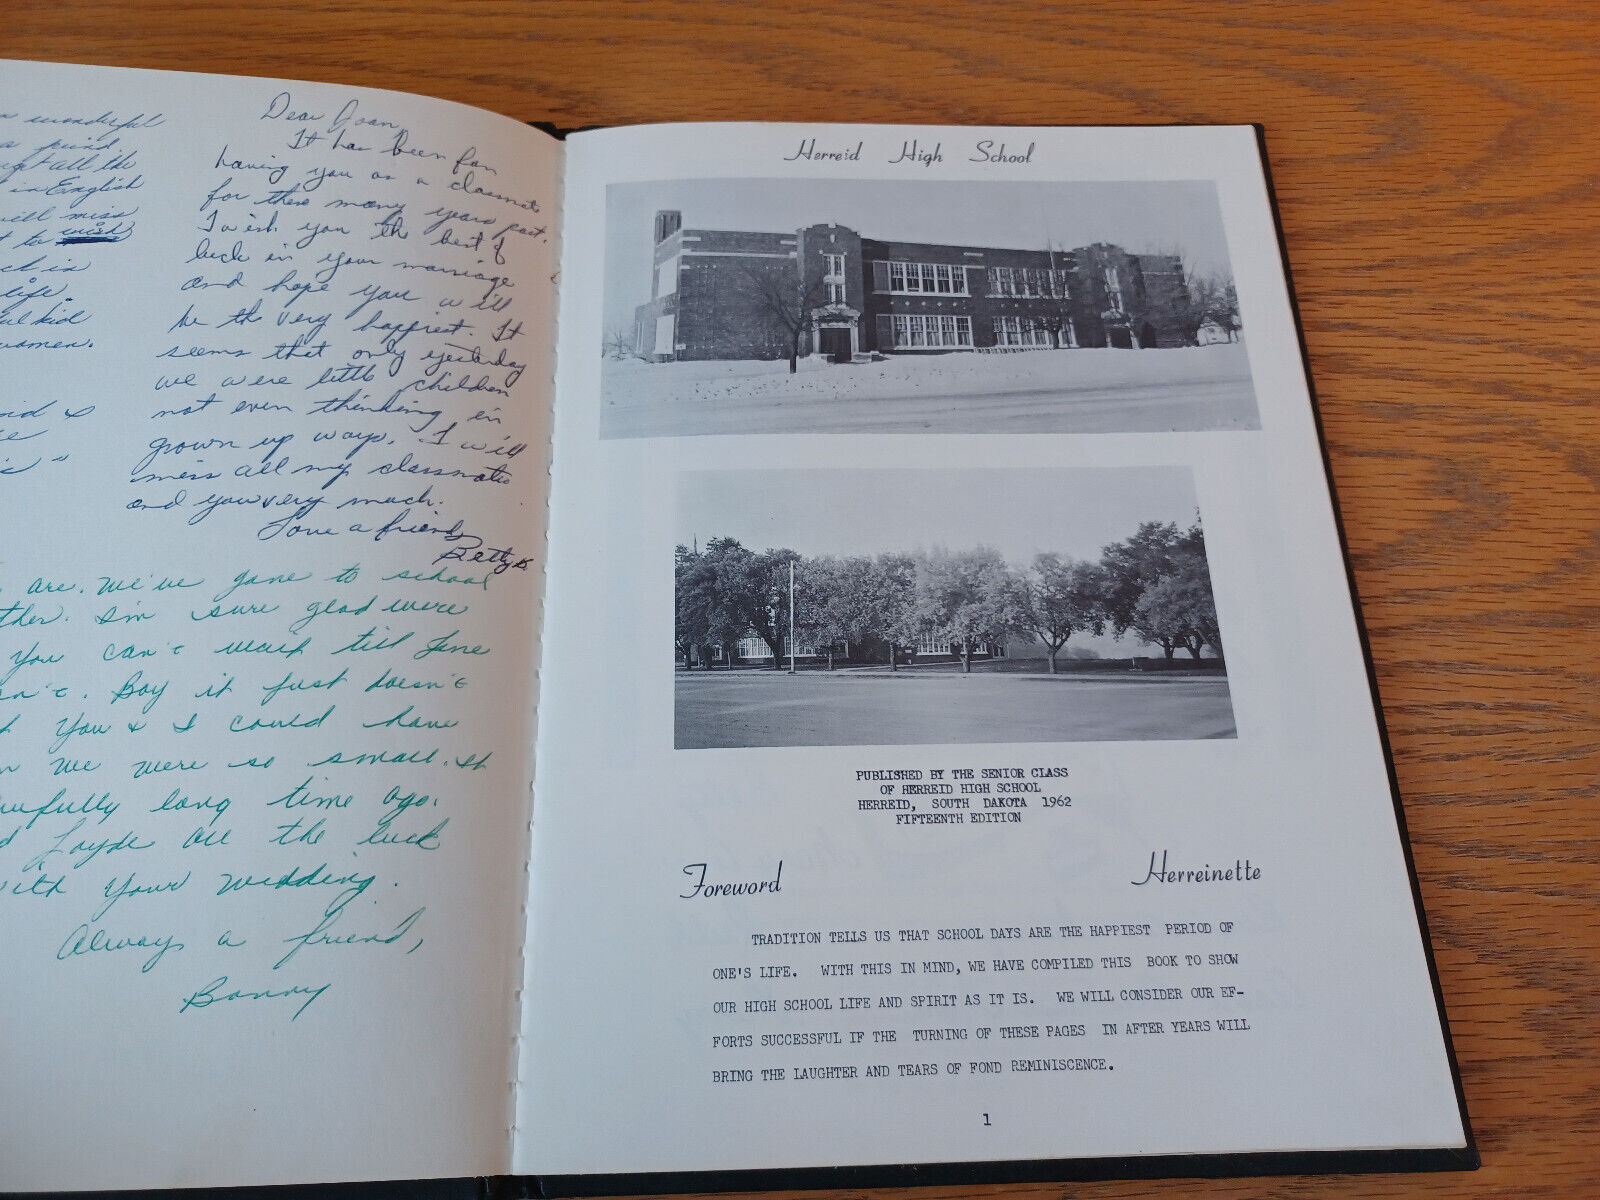 wonderful
all the
in English
will miss
to wish
life.
kid
women.
Dear Joan,
It has been fun
having you as a classmate
for these many years past.
I wish you the best of
luck in your marriage
and hope you will
be the very happiest. It
seems that only yesterday
we were little children
not even thinking in
grown up ways. I will
miss all my classmates
and you very much.
Love a friend,
Betty K
are. We've gone to school
I'm sure glad we're
You can't wait till June
Boy it just doesn't
You & I could have
we were so small. It
awfully long time ago.
all the luck
with your wedding.
Always a friend,
Herreid High School
PUBLISHED BY THE SENIOR CLASS
OF HERREID HIGH SCHOOL
HERREID, SOUTH DAKOTA 1962
FIFTEENTH EDITION
Foreword Herreinette
TRADITION TELLS US THAT SCHOOL DAYS ARE THE HAPPIEST PERIOD OF
ONE'S LIFE. WITH THIS IN MIND, WE HAVE COMPILED THIS BOOK TO SHOW
OUR HIGH SCHOOL LIFE AND SPIRIT AS IT IS. WE WILL CONSIDER OUR EF-
FORTS SUCCESSFUL IF THE TURNING OF THESE PAGES IN AFTER YEARS WILL
BRING THE LAUGHTER AND TEARS OF FOND REMINISCENCE.
1